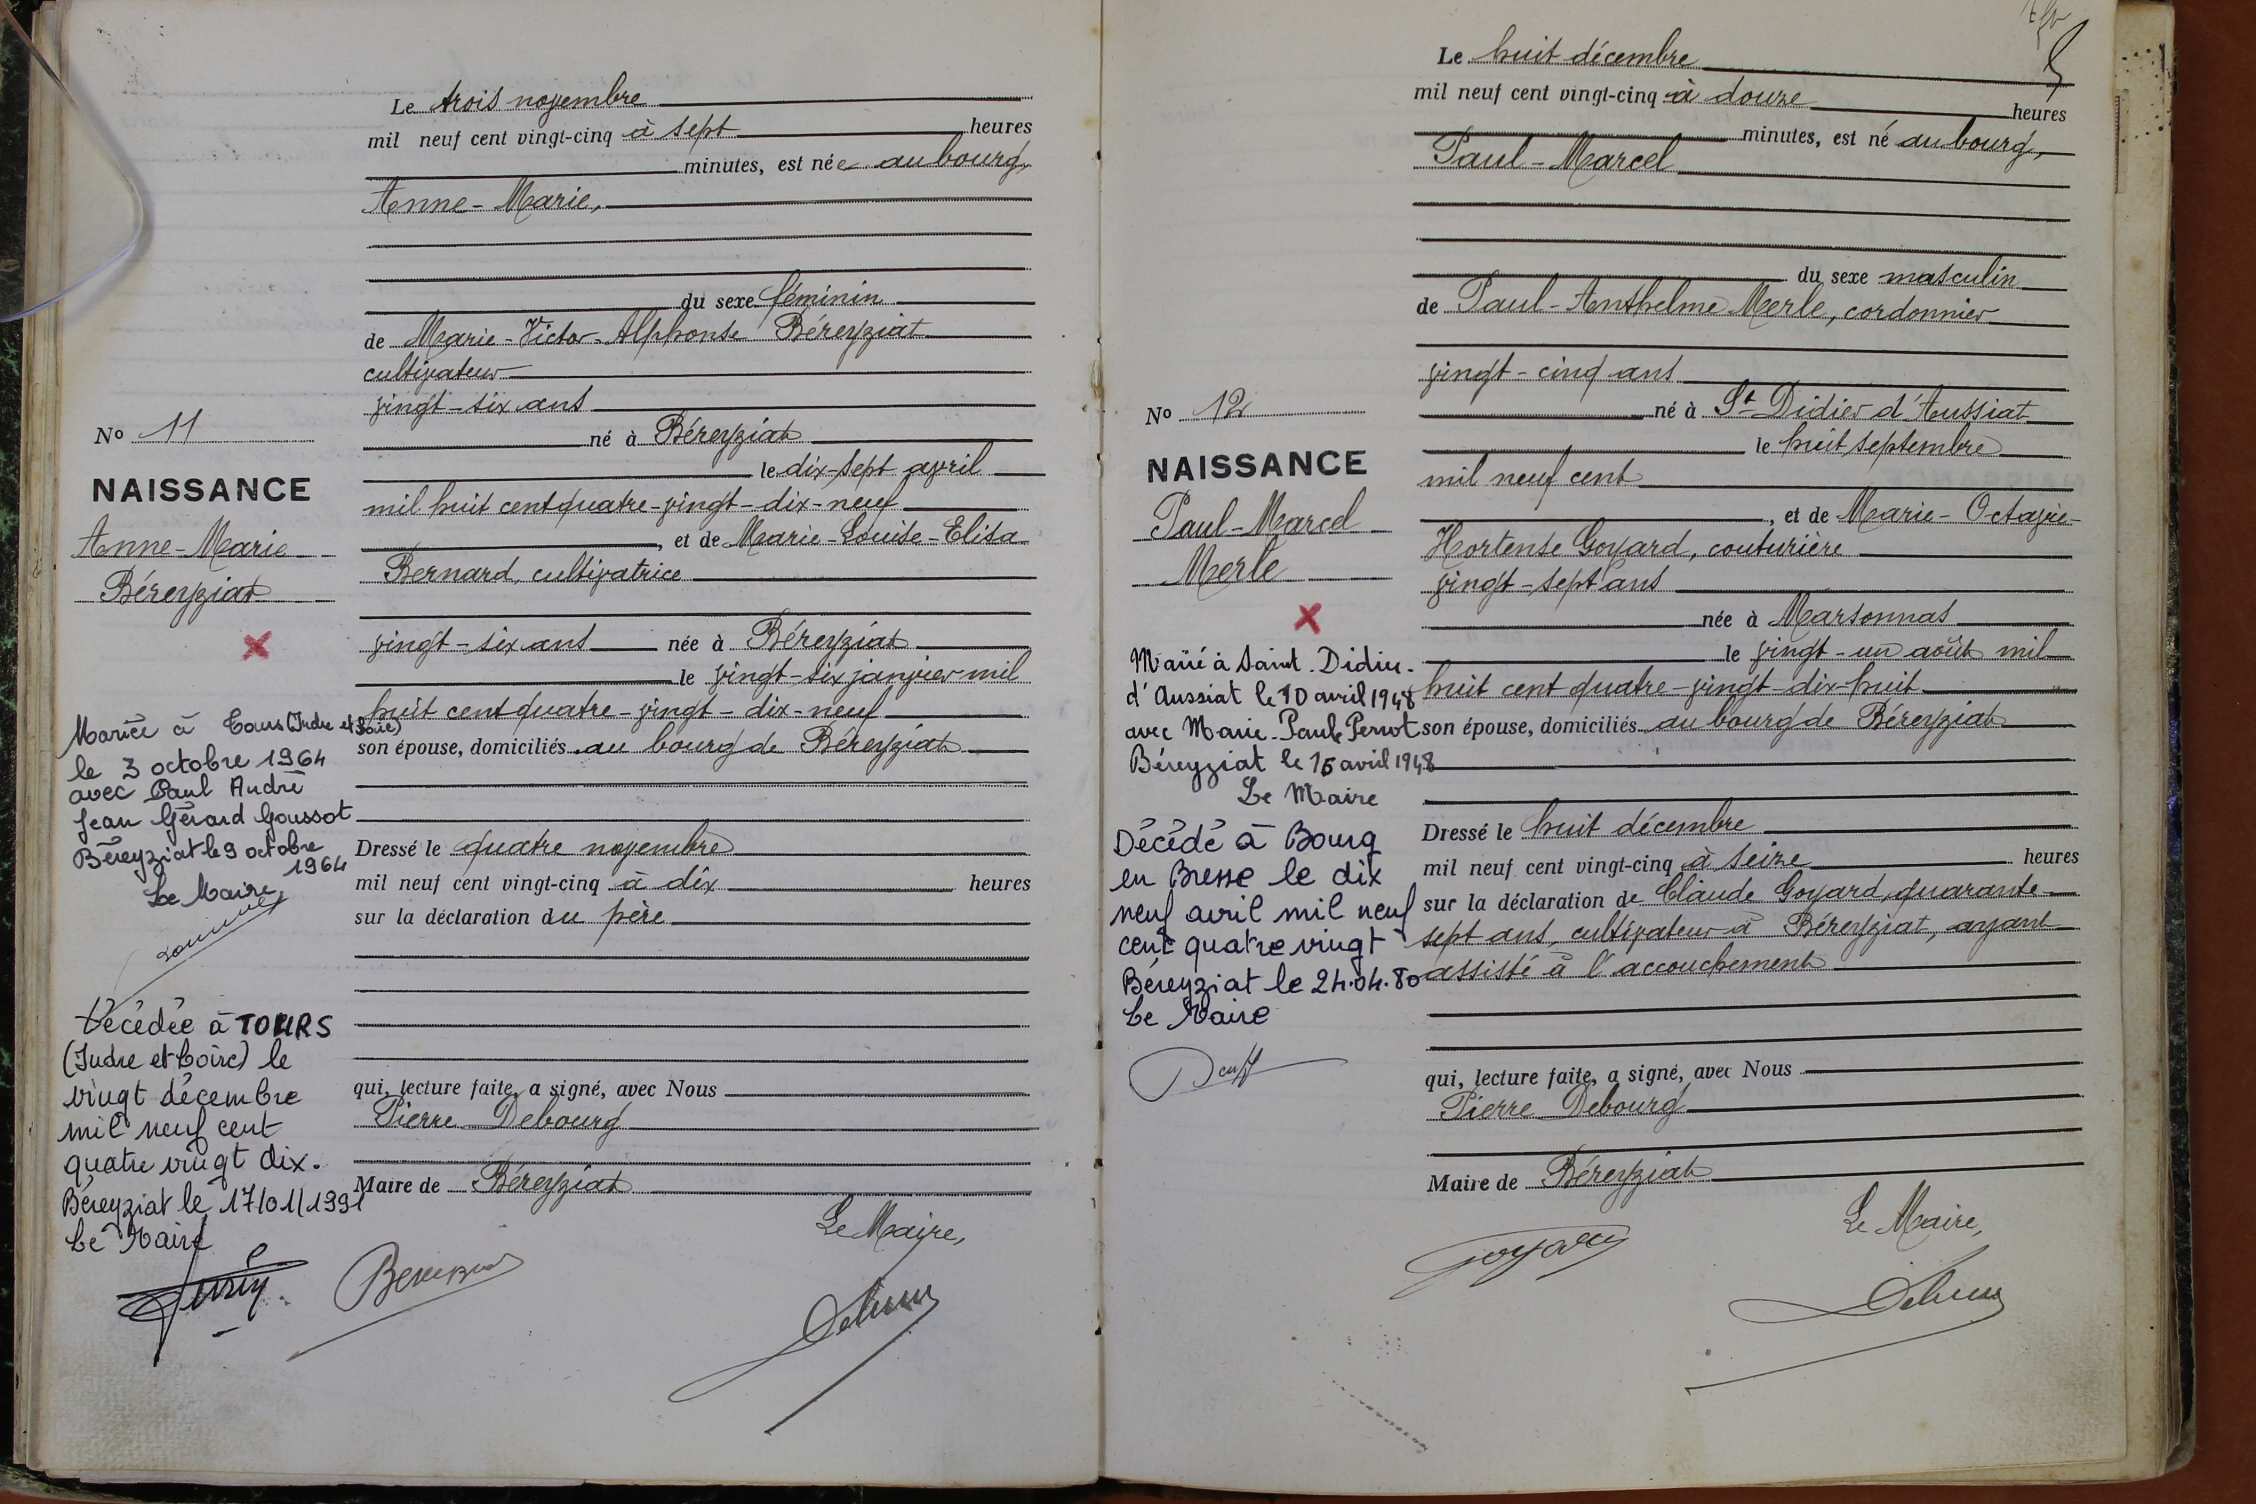 Le trois novembre
mil neuf cent vingt-cinq à sept heures
minutes, est née au bourg,
Anne-Marie,
du sexe féminin
de Marie-Victor-Alphonse Béreyziat
cultivateur
vingt-six ans
né à Béreyziat
le dix-sept avril
mil huit cent quatre-vingt-dix-neuf
, et de Marie-Louise-Elisa
Bernard, cultivatrice
vingt-six ans née à Béreyziat
le vingt-six janvier mil
huit cent quatre-vingt-dix-neuf
son épouse, domiciliés au bourg de Béreyziat
Dressé le quatre novembre
mil neuf cent vingt-cinq à dix heures
sur la déclaration du père
qui, lecture faite, a signé, avec Nous
Pierre Debourg
Maire de Béreyziat
Le Maire,
No 11
NAISSANCE
Anne-Marie
Béreyziat
Mariée à Tours (Indre et Loire)
le 3 octobre 1964
avec Paul André
Jean Gérard Goussot
Béreyziat le 9 octobre
1964
Le Maire,
Décédée à TOURS
(Indre et Loire) le
vingt décembre
mil neuf cent
quatre vingt dix.
Béreyziat le 17/01/1991
Le Maire
Le huit décembre
mil neuf cent vingt-cinq à douze heures
minutes, est né au bourg,
Paul-Marcel
du sexe masculin
de Paul-Anthelme Merle, cordonnier
vingt-cinq ans
né à St Didier d'Aussiat
le huit septembre
mil neuf cent
, et de Marie-Octavie-
Hortense Goyard, couturière
vingt-sept ans
née à Marsonnas
le vingt-un août mil
huit cent quatre-vingt-dix-huit
son épouse, domiciliés au bourg de Béreyziat
Dressé le huit décembre
mil neuf cent vingt-cinq à seize heures
sur la déclaration de Claude Goyard, quarante
sept ans, cultivateur à Béreyziat, ayant
assisté à l'accouchement
qui, lecture faite, a signé, avec Nous
Pierre Debourg
Maire de Béreyziat
Le Maire,
Goyard
No 12
NAISSANCE
Paul-Marcel
Merle
Marié à Saint-Didier-
d'Aussiat le 10 avril 1948
avec Marie-Paule Perrot
Béreyziat le 15 avril 1948
Le Maire
Décédé à Bourg
en Bresse le dix
neuf avril mil neuf
cent quatre vingt
Béreyziat le 24.04.80
Le Maire